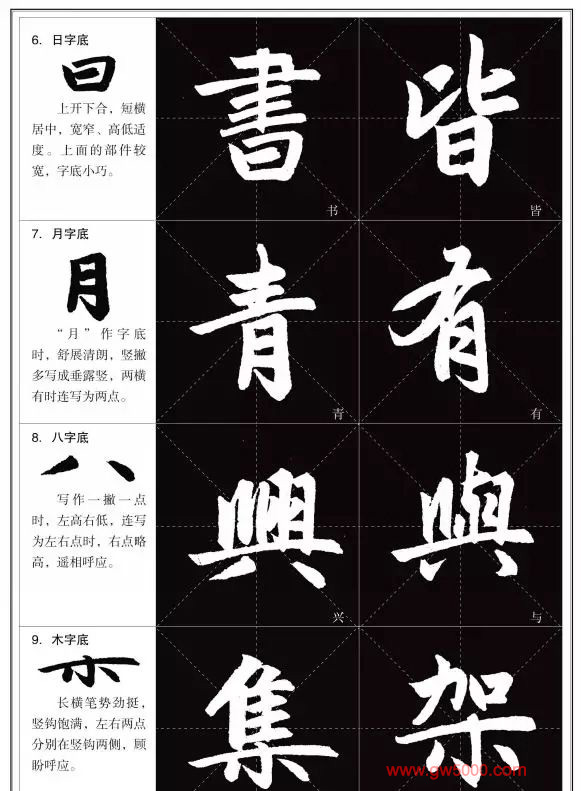 6. 日字底
曰
上开下合，短横
居中，宽窄、高低适
度。上面的部件较
宽，字底小巧。
書 皆
书 皆
7. 月字底
月
“月”作字底
时，舒展清朗，竖撇
多写成垂露竖，两横
有时连写为两点。
青 有
青 有
8. 八字底
八
写作一撇一点
时，左高右低，连写
为左右点时，右点略
高，遥相呼应。
興 與
兴 与
9. 木字底
木
长横笔势劲挺，
竖钩饱满，左右两点
分别在竖钩两侧，顾
盼呼应。
集 架
www.gw5000.com